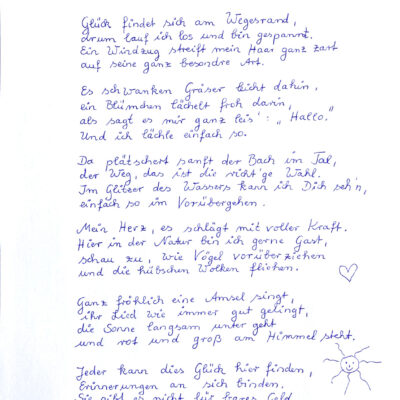 Glück findet sich am Wegesrand,
drum lauf ich los und bin gespannt.
Ein Windzug streift mein Haar ganz zart
auf seine ganz besondre Art.
Es schwanken Gräser leicht dahin,
ein Blümchen lächelt froh darin,
als sagt es mir ganz leis': „Hallo."
Und ich lächle einfach so.
Da plätschert sanft der Bach im Tal,
der Weg, das ist die richt'ge Wahl.
Im Glitzer des Wassers kann ich Dich seh'n,
einfach so im Vorübergehen.
Mein Herz, es schlägt mit voller Kraft.
Hier in der Natur bin ich gerne Gast,
schau zu, wie Vögel vorüberziehen
und die hübschen Wolken fliehen.
Ganz fröhlich eine Amsel singt,
ihr Lied wie immer gut gelingt,
die Sonne langsam unter geht
und rot und groß am Himmel steht.
Jeder kann dies Glück hier finden,
Erinnerungen an sich binden.
Sie gibt es nicht für bares Geld